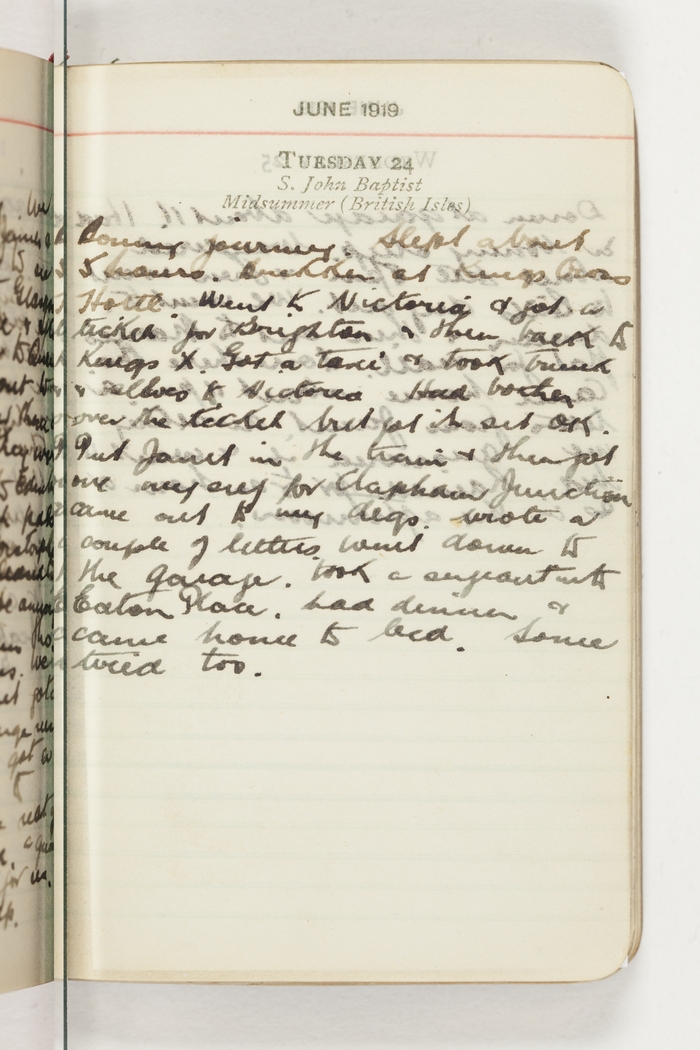 JUNE 1919
TUESDAY 24
S. John Baptist
Midsummer (British Isles)
journey. Slept about
5 hours. Brekker at Kings Cross
Hotel. Went to Victoria & got a
ticket for Brighton & then back to
Kings X. Got a taxi & took trunk
& selves to Victoria Had bother
over the ticket but got it set OK.
Put Janet in the train & then got
one myself for Clapham Junction
came out to my digs. wrote a
couple of letters went down to
the garage. took a sergeant
Eaton Place. had dinner &
came home to bed. Some
tired too.